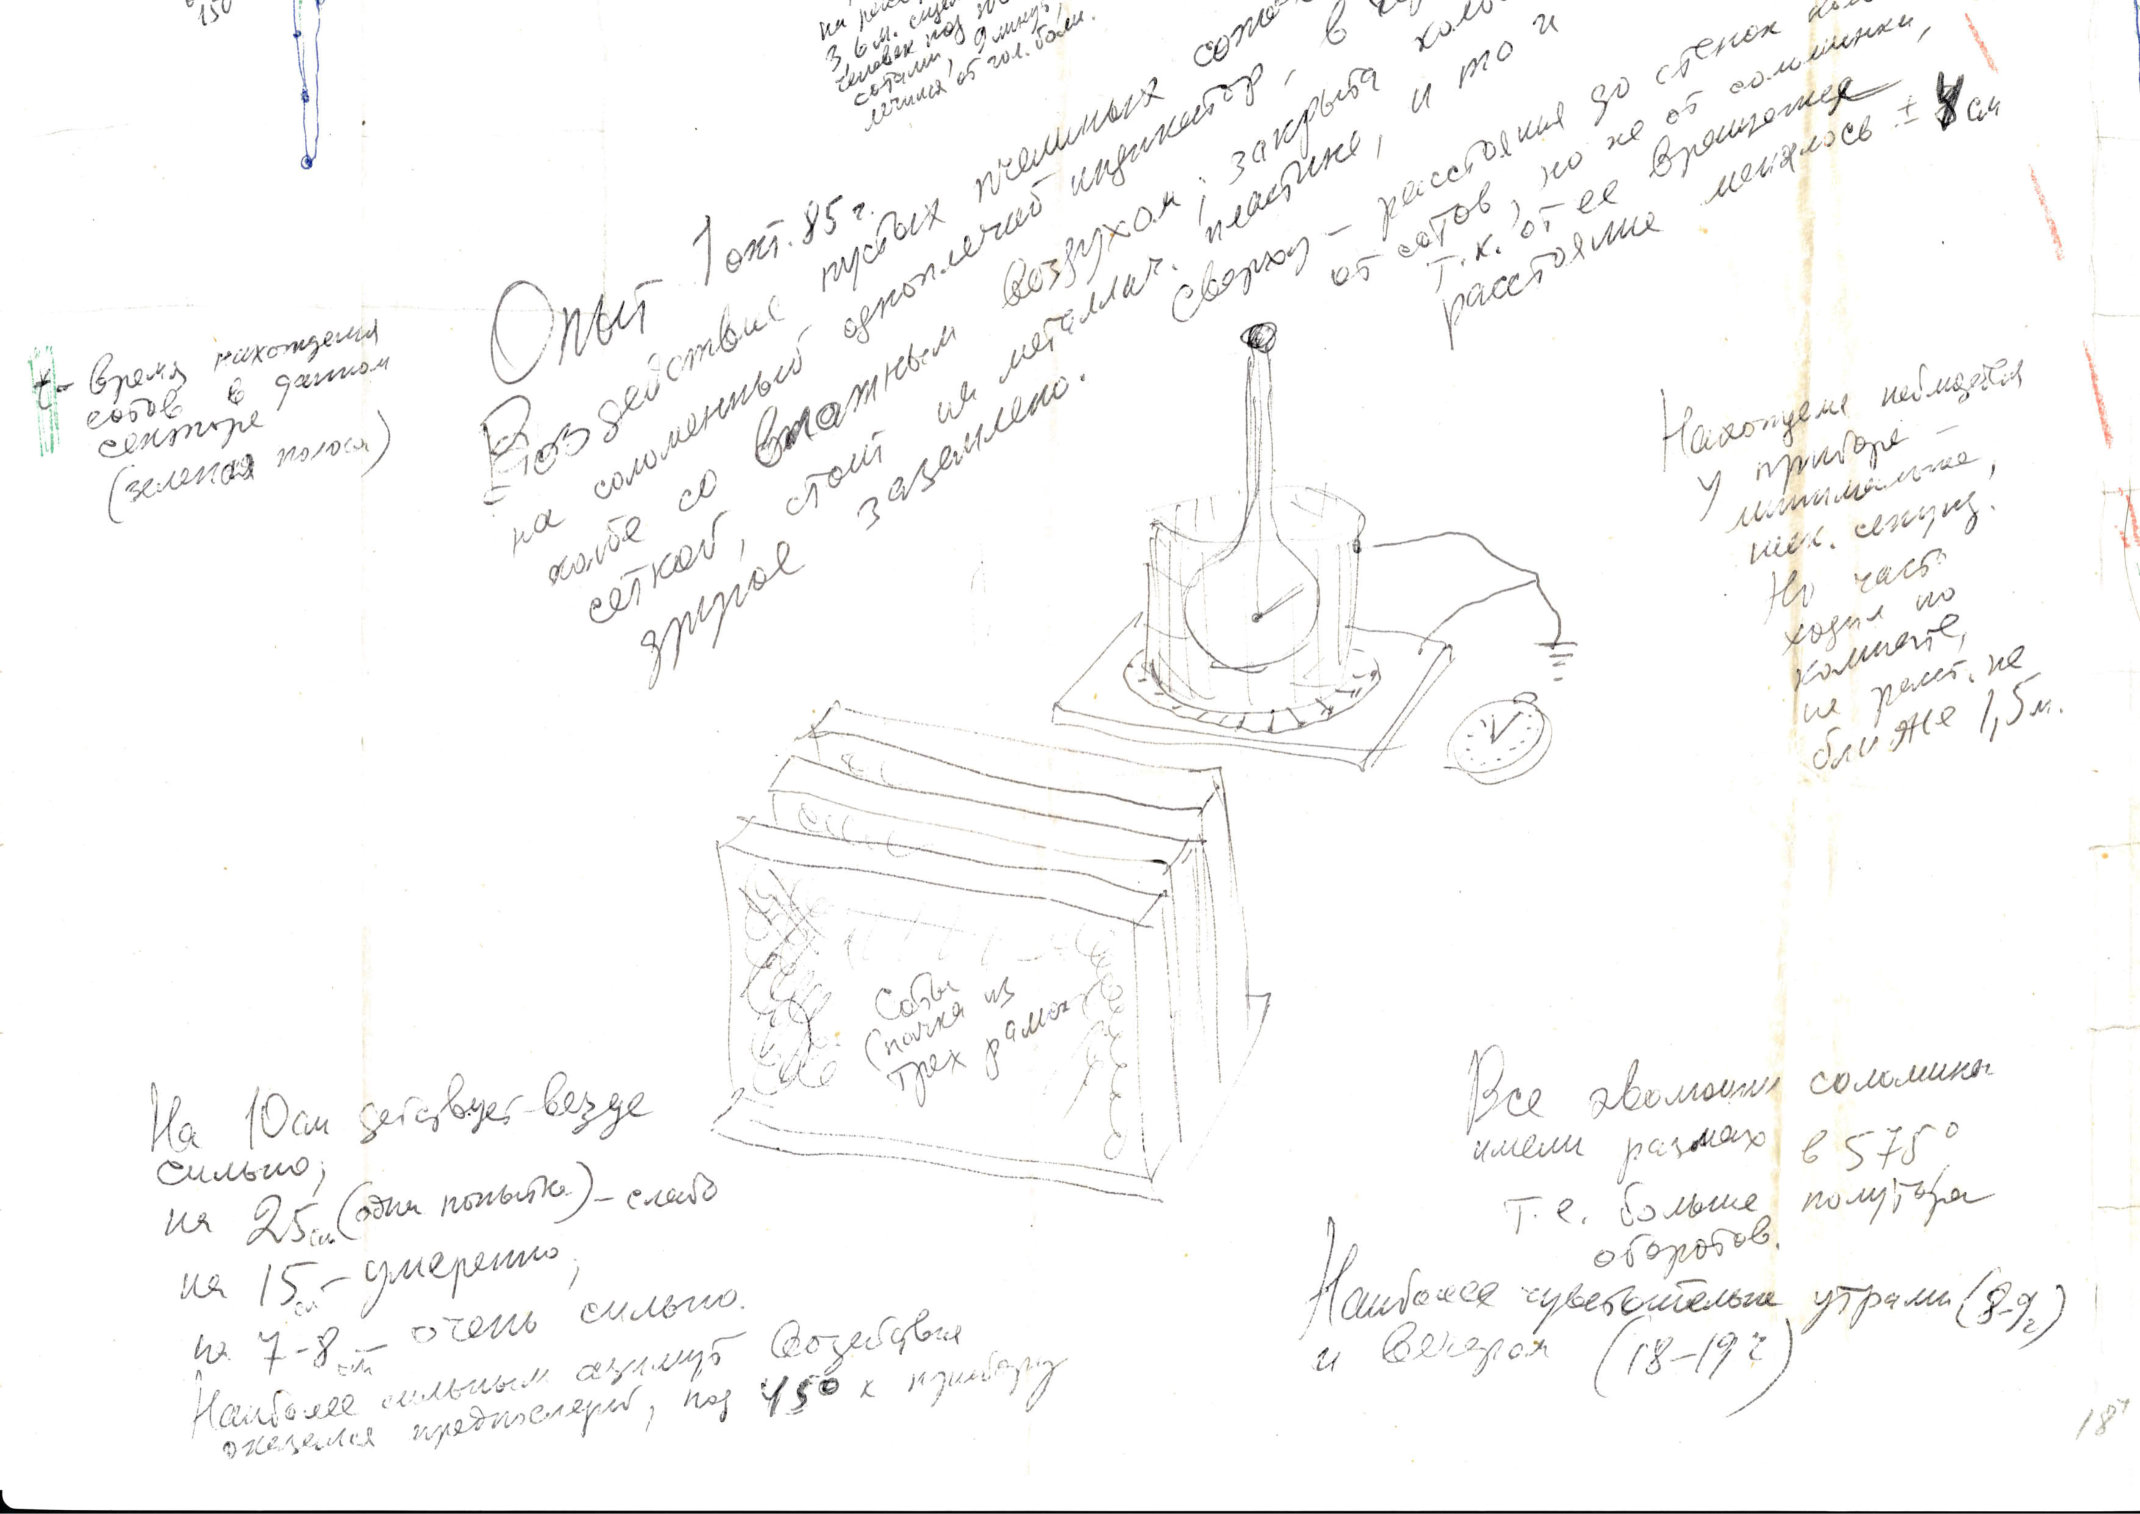 150
на расс
3,6 м. сидел
человек под
сотами, 9 минут,
лечился от гол. боли.
Опыт 1 окт. 85 г.
Воздействие пустых пчелиных сото
на соломенный одноплечий индикатор, в
колбе со влажным воздухом; закрыта
сеткой, стоит на металлич. пластине, и то и
другое заземлено.
Сверху – расстояния до стенок
от сотов, но не от соломинки,
т.к. от ее вращения
расстояние менялось ± 4 см
t – время нахождения
сотов в данном
секторе
(зеленая полоса)
Нахождение наблюдателя
у прибора –
минимальное,
неск. секунд.
Но часто
ходил по
комнате,
на расст. не
ближе 1,5 м.
Соты
(пачка из
трех рамок
На 10 см действует везде
сильно;
на 25 см (одна попытка) – слабо
на 15 см – умеренно;
на 7–8 см – очень сильно.
Наиболее сильным азимут воздействия
оказался предпоследний, под 450 к прибору
Все эволюции соломины
имели размах в 575°
т.е. больше полутора
оборотов.
Наиболее чувствительна утрами (8–9 ч)
и вечером (18–19 ч)
18